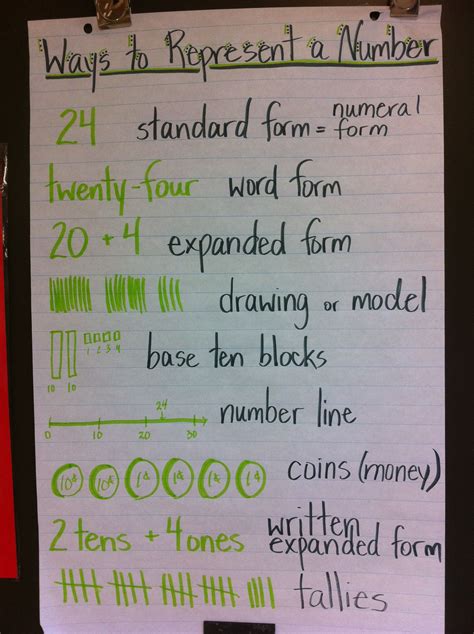 Ways to Represent a Number
24 standard form = numeral form
twenty-four word form
20 + 4 expanded form
drawing or model
1 2 3 4
10 10
base ten blocks
24
0 10 20 30
number line
10¢ 10¢ 1¢ 1¢ 1¢ 1¢ coins (money)
2 tens + 4 ones written expanded form
tallies